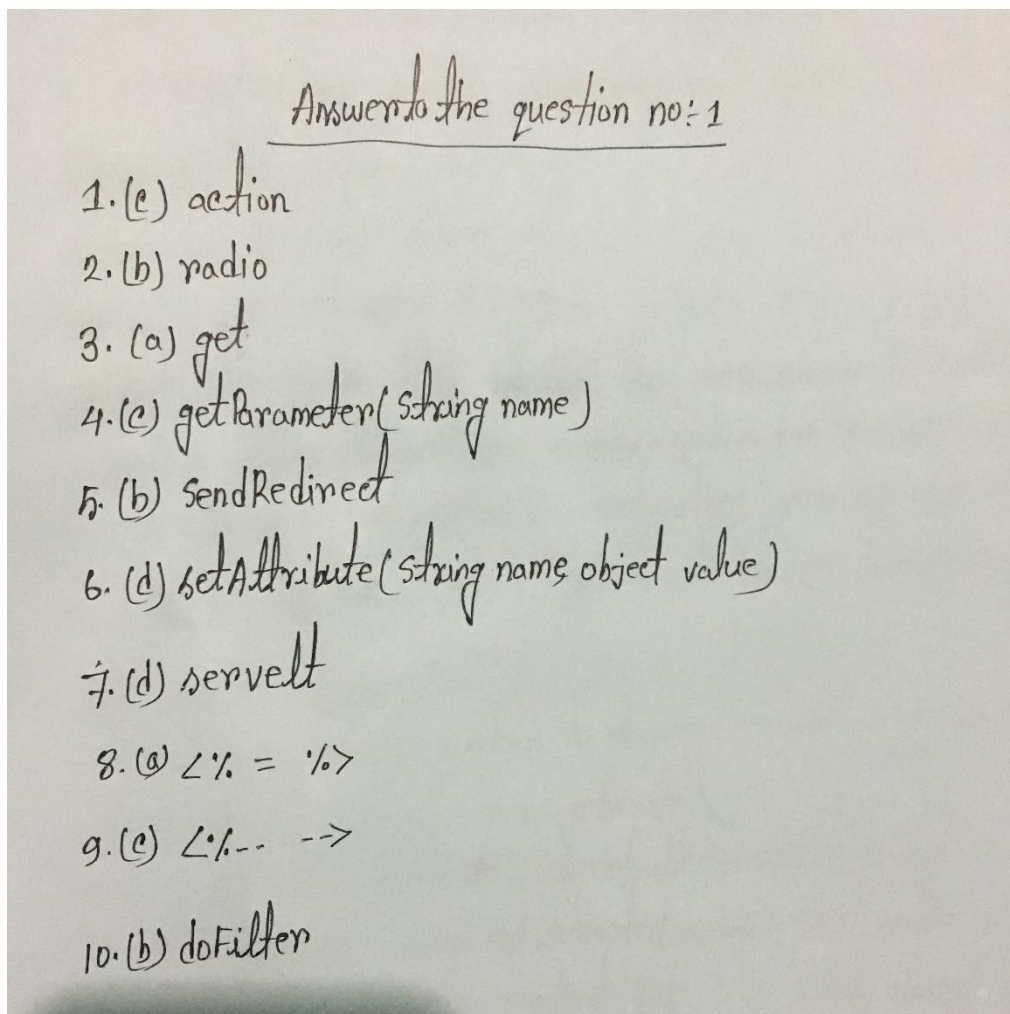 Answer to the question no: 1
1. (c) action
2. (b) radio
3. (a) get
4. (c) getParameter(String name)
5. (b) SendRedirect
6. (d) setAttribute(String name, object value)
7. (d) servelt
8. (a) <% = %>
9. (c) <%-- -->
10. (b) doFilter